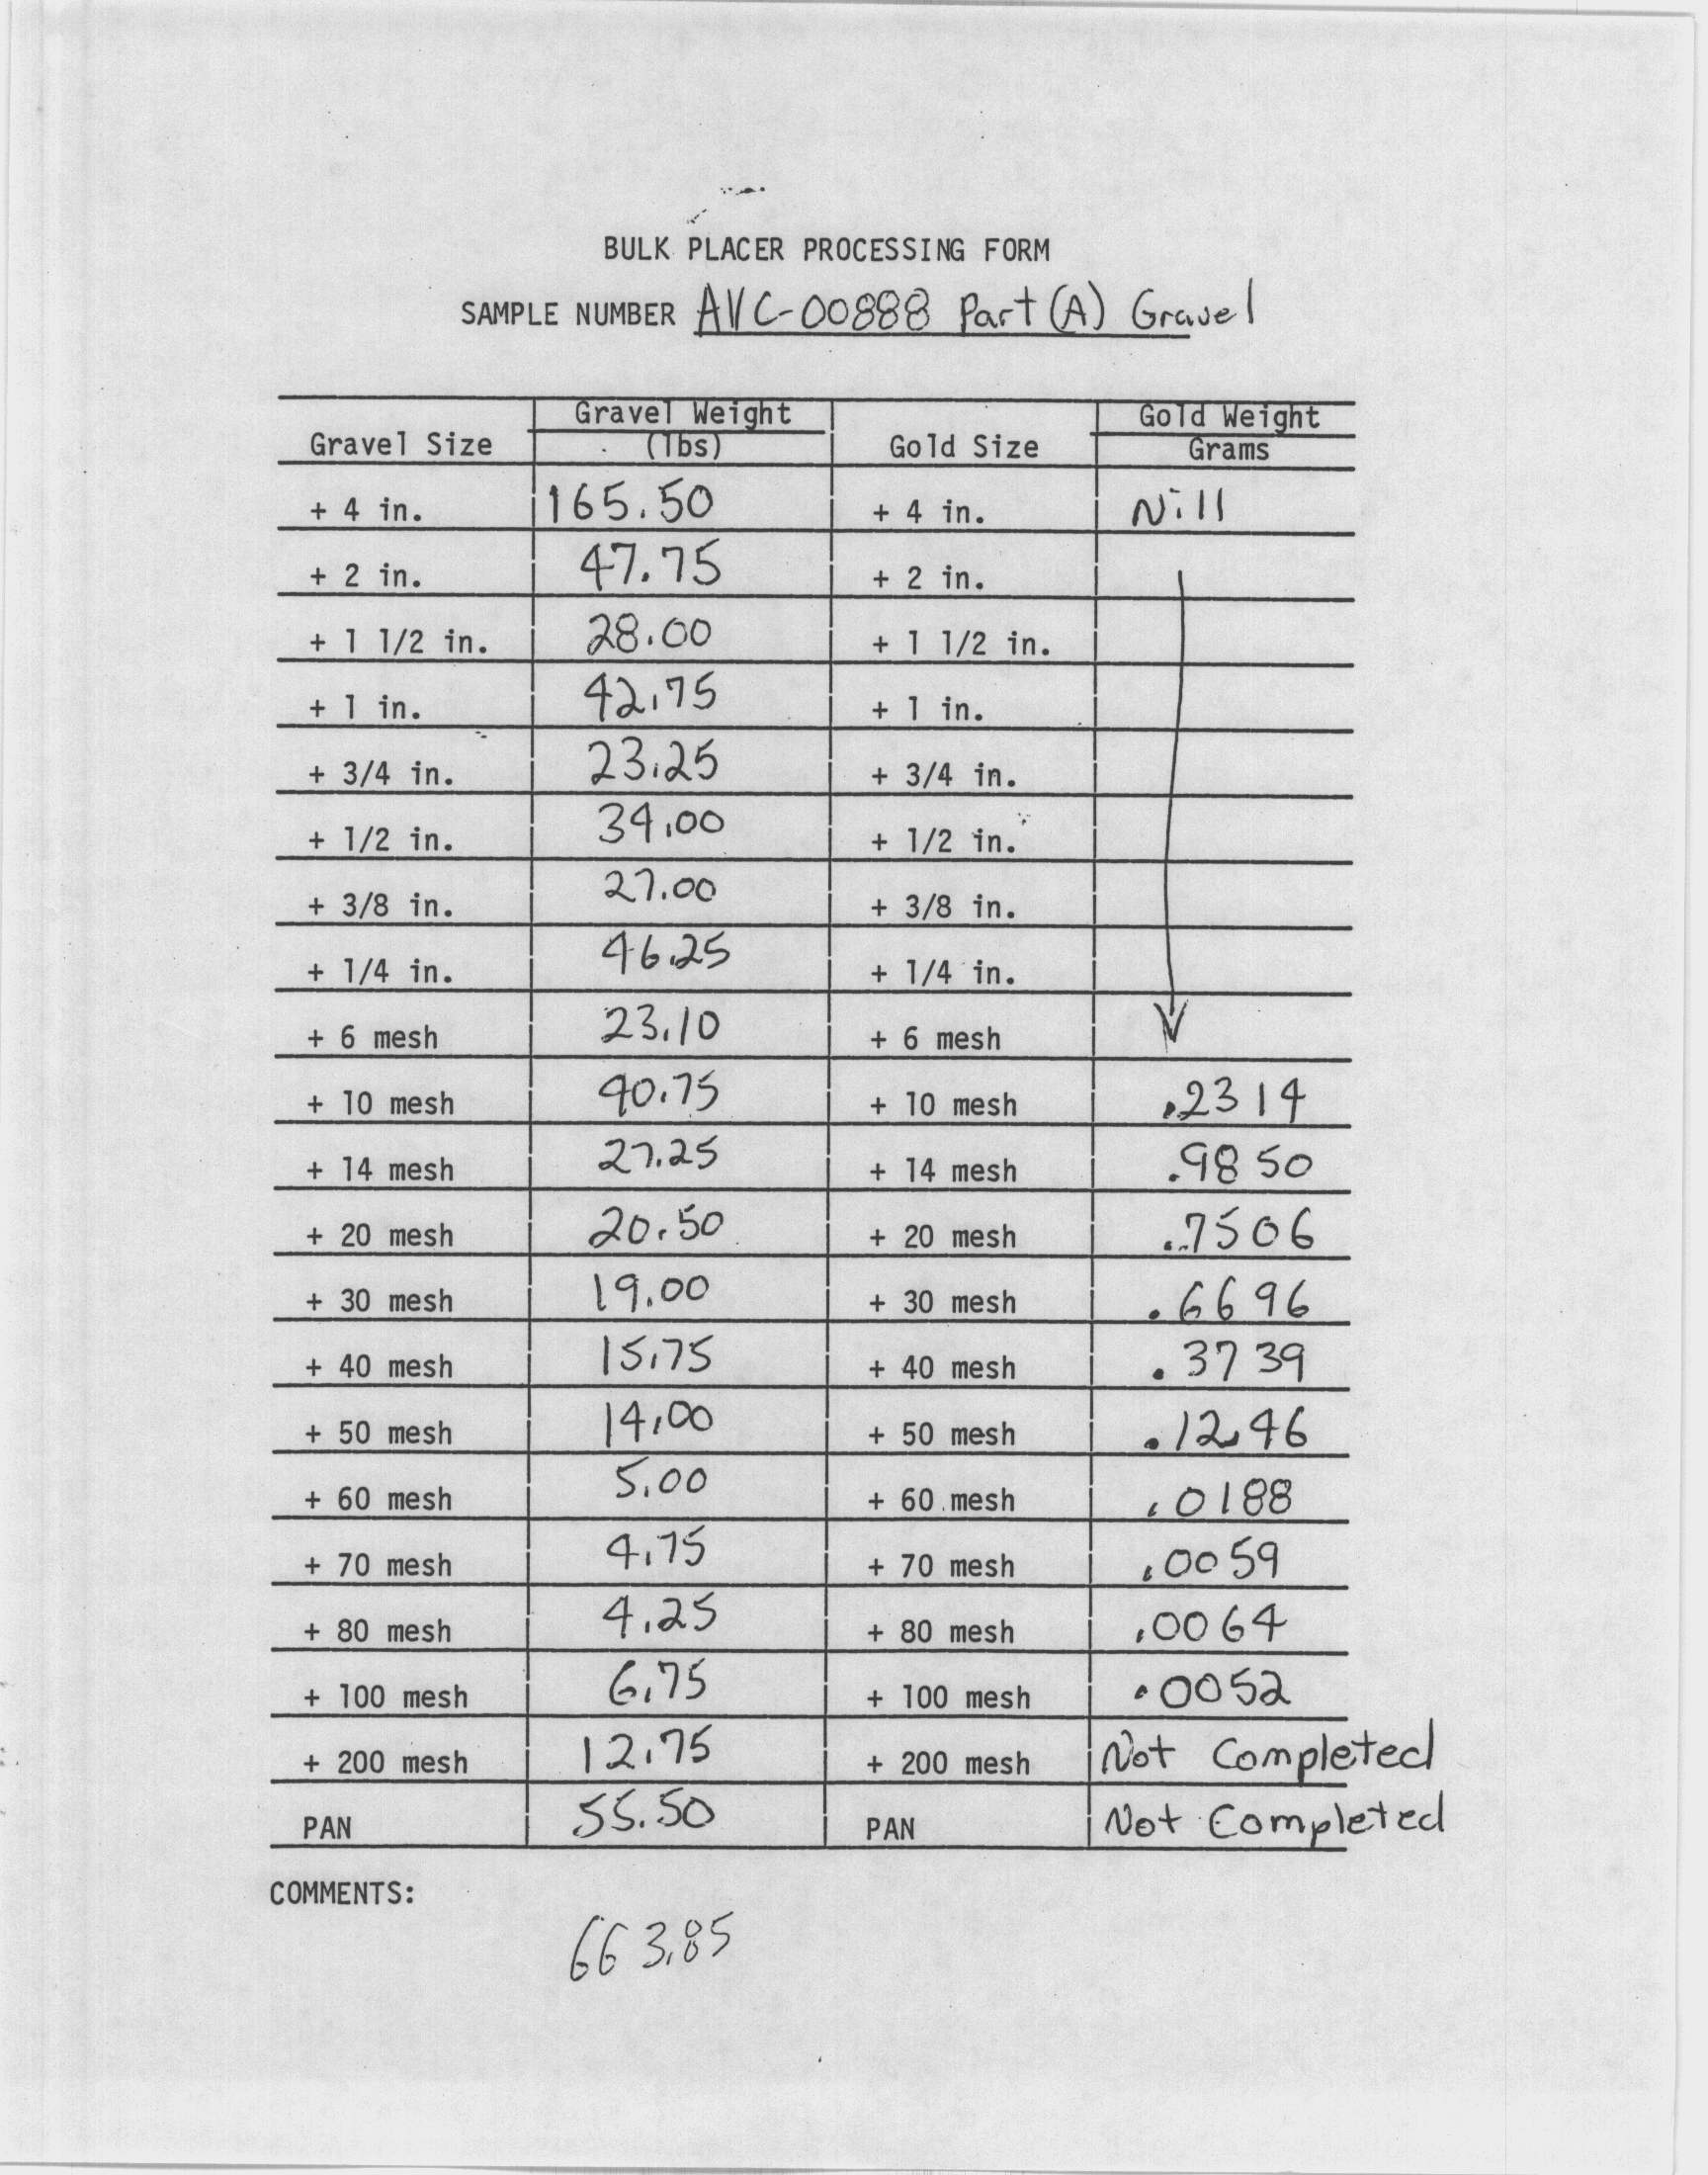 BULK PLACER PROCESSING FORM
SAMPLE NUMBER AVC-00888 Part (A) Gravel
Gravel Size Gravel Weight (lbs) Gold Size Gold Weight Grams
+ 4 in. 165.50 + 4 in. Nill
+ 2 in. 47.75 + 2 in.
+ 1 1/2 in. 28.00 + 1 1/2 in.
+ 1 in. 42.75 + 1 in.
+ 3/4 in. 23.25 + 3/4 in.
+ 1/2 in. 34.00 + 1/2 in.
+ 3/8 in. 27.00 + 3/8 in.
+ 1/4 in. 46.25 + 1/4 in.
+ 6 mesh 23.10 + 6 mesh
+ 10 mesh 40.75 + 10 mesh .2314
+ 14 mesh 27.25 + 14 mesh .9850
+ 20 mesh 20.50 + 20 mesh .7506
+ 30 mesh 19.00 + 30 mesh .6696
+ 40 mesh 15.75 + 40 mesh .3739
+ 50 mesh 14.00 + 50 mesh .1246
+ 60 mesh 5.00 + 60 mesh .0188
+ 70 mesh 4.75 + 70 mesh .0059
+ 80 mesh 4.25 + 80 mesh .0064
+ 100 mesh 6.75 + 100 mesh .0052
+ 200 mesh 12.75 + 200 mesh Not Completed
PAN 55.50 PAN Not Completed
COMMENTS:
663.85